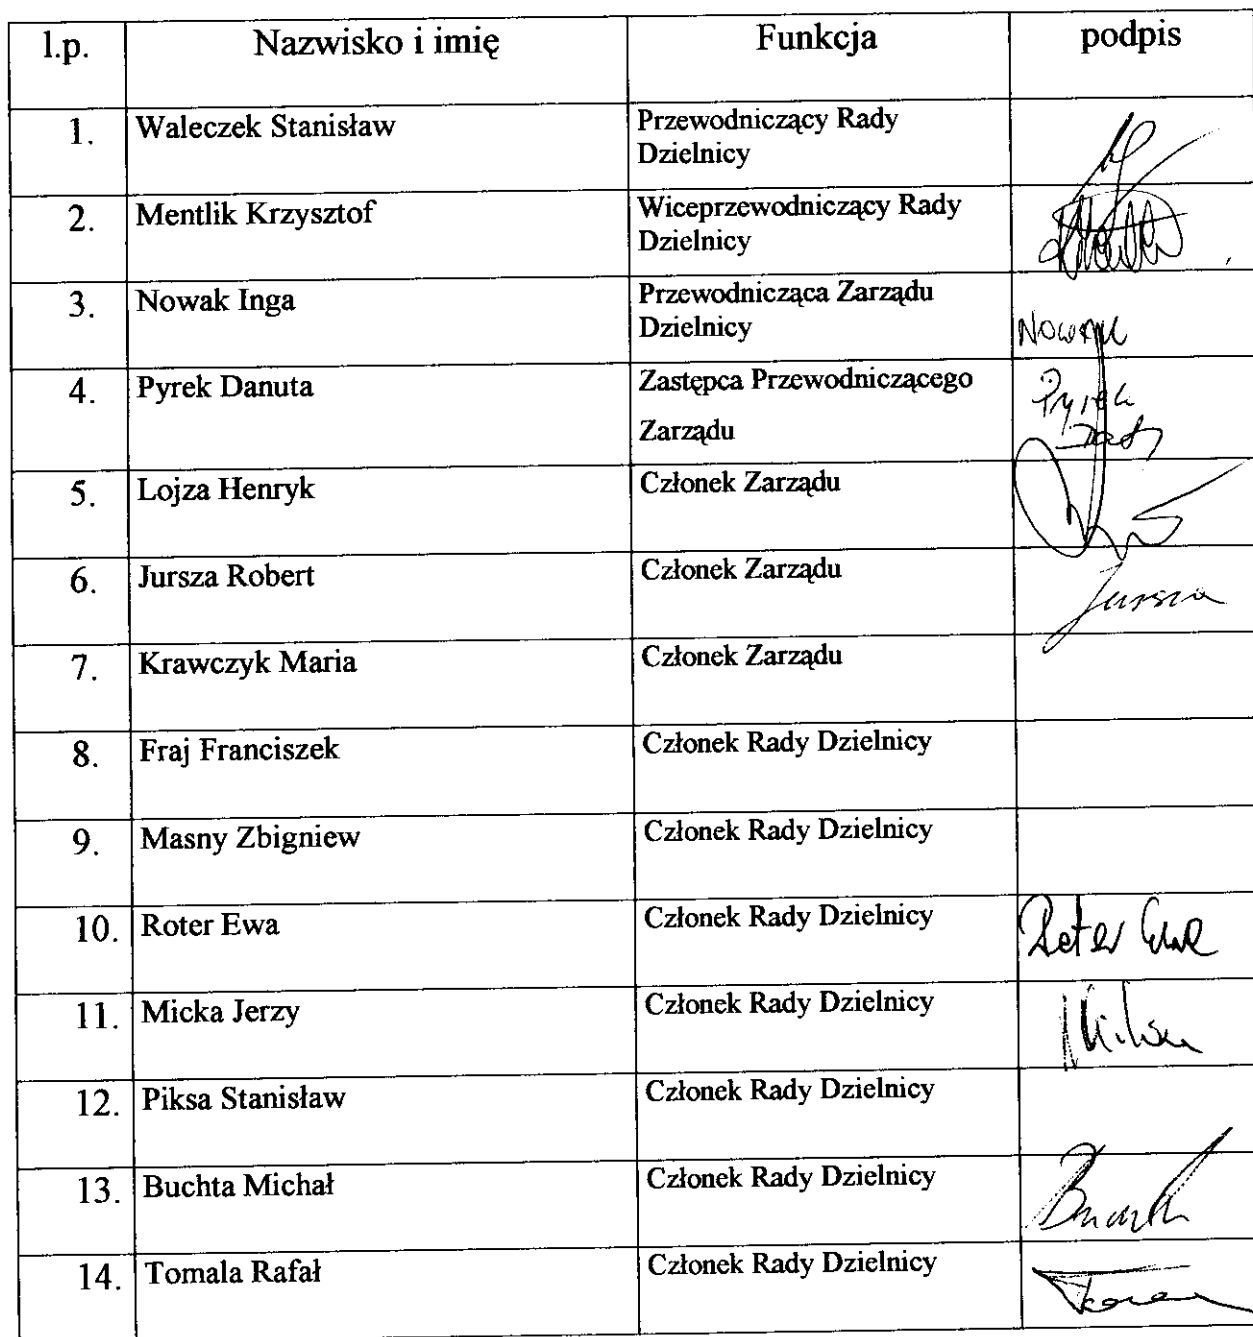 l.p. Nazwisko i imię Funkcja podpis
1. Waleczek Stanisław Przewodniczący Rady
Dzielnicy
2. Mentlik Krzysztof Wiceprzewodniczący Rady
Dzielnicy
3. Nowak Inga Przewodnicząca Zarządu
Dzielnicy Nowak
4. Pyrek Danuta Zastępca Przewodniczącego Pyrek
Zarządu
5. Lojza Henryk Członek Zarządu
6. Jursza Robert Członek Zarządu Jursza
7. Krawczyk Maria Członek Zarządu
8. Fraj Franciszek Członek Rady Dzielnicy
9. Masny Zbigniew Członek Rady Dzielnicy
10. Roter Ewa Członek Rady Dzielnicy Roter Ewa
11. Micka Jerzy Członek Rady Dzielnicy
12. Piksa Stanisław Członek Rady Dzielnicy
13. Buchta Michał Członek Rady Dzielnicy
14. Tomala Rafał Członek Rady Dzielnicy